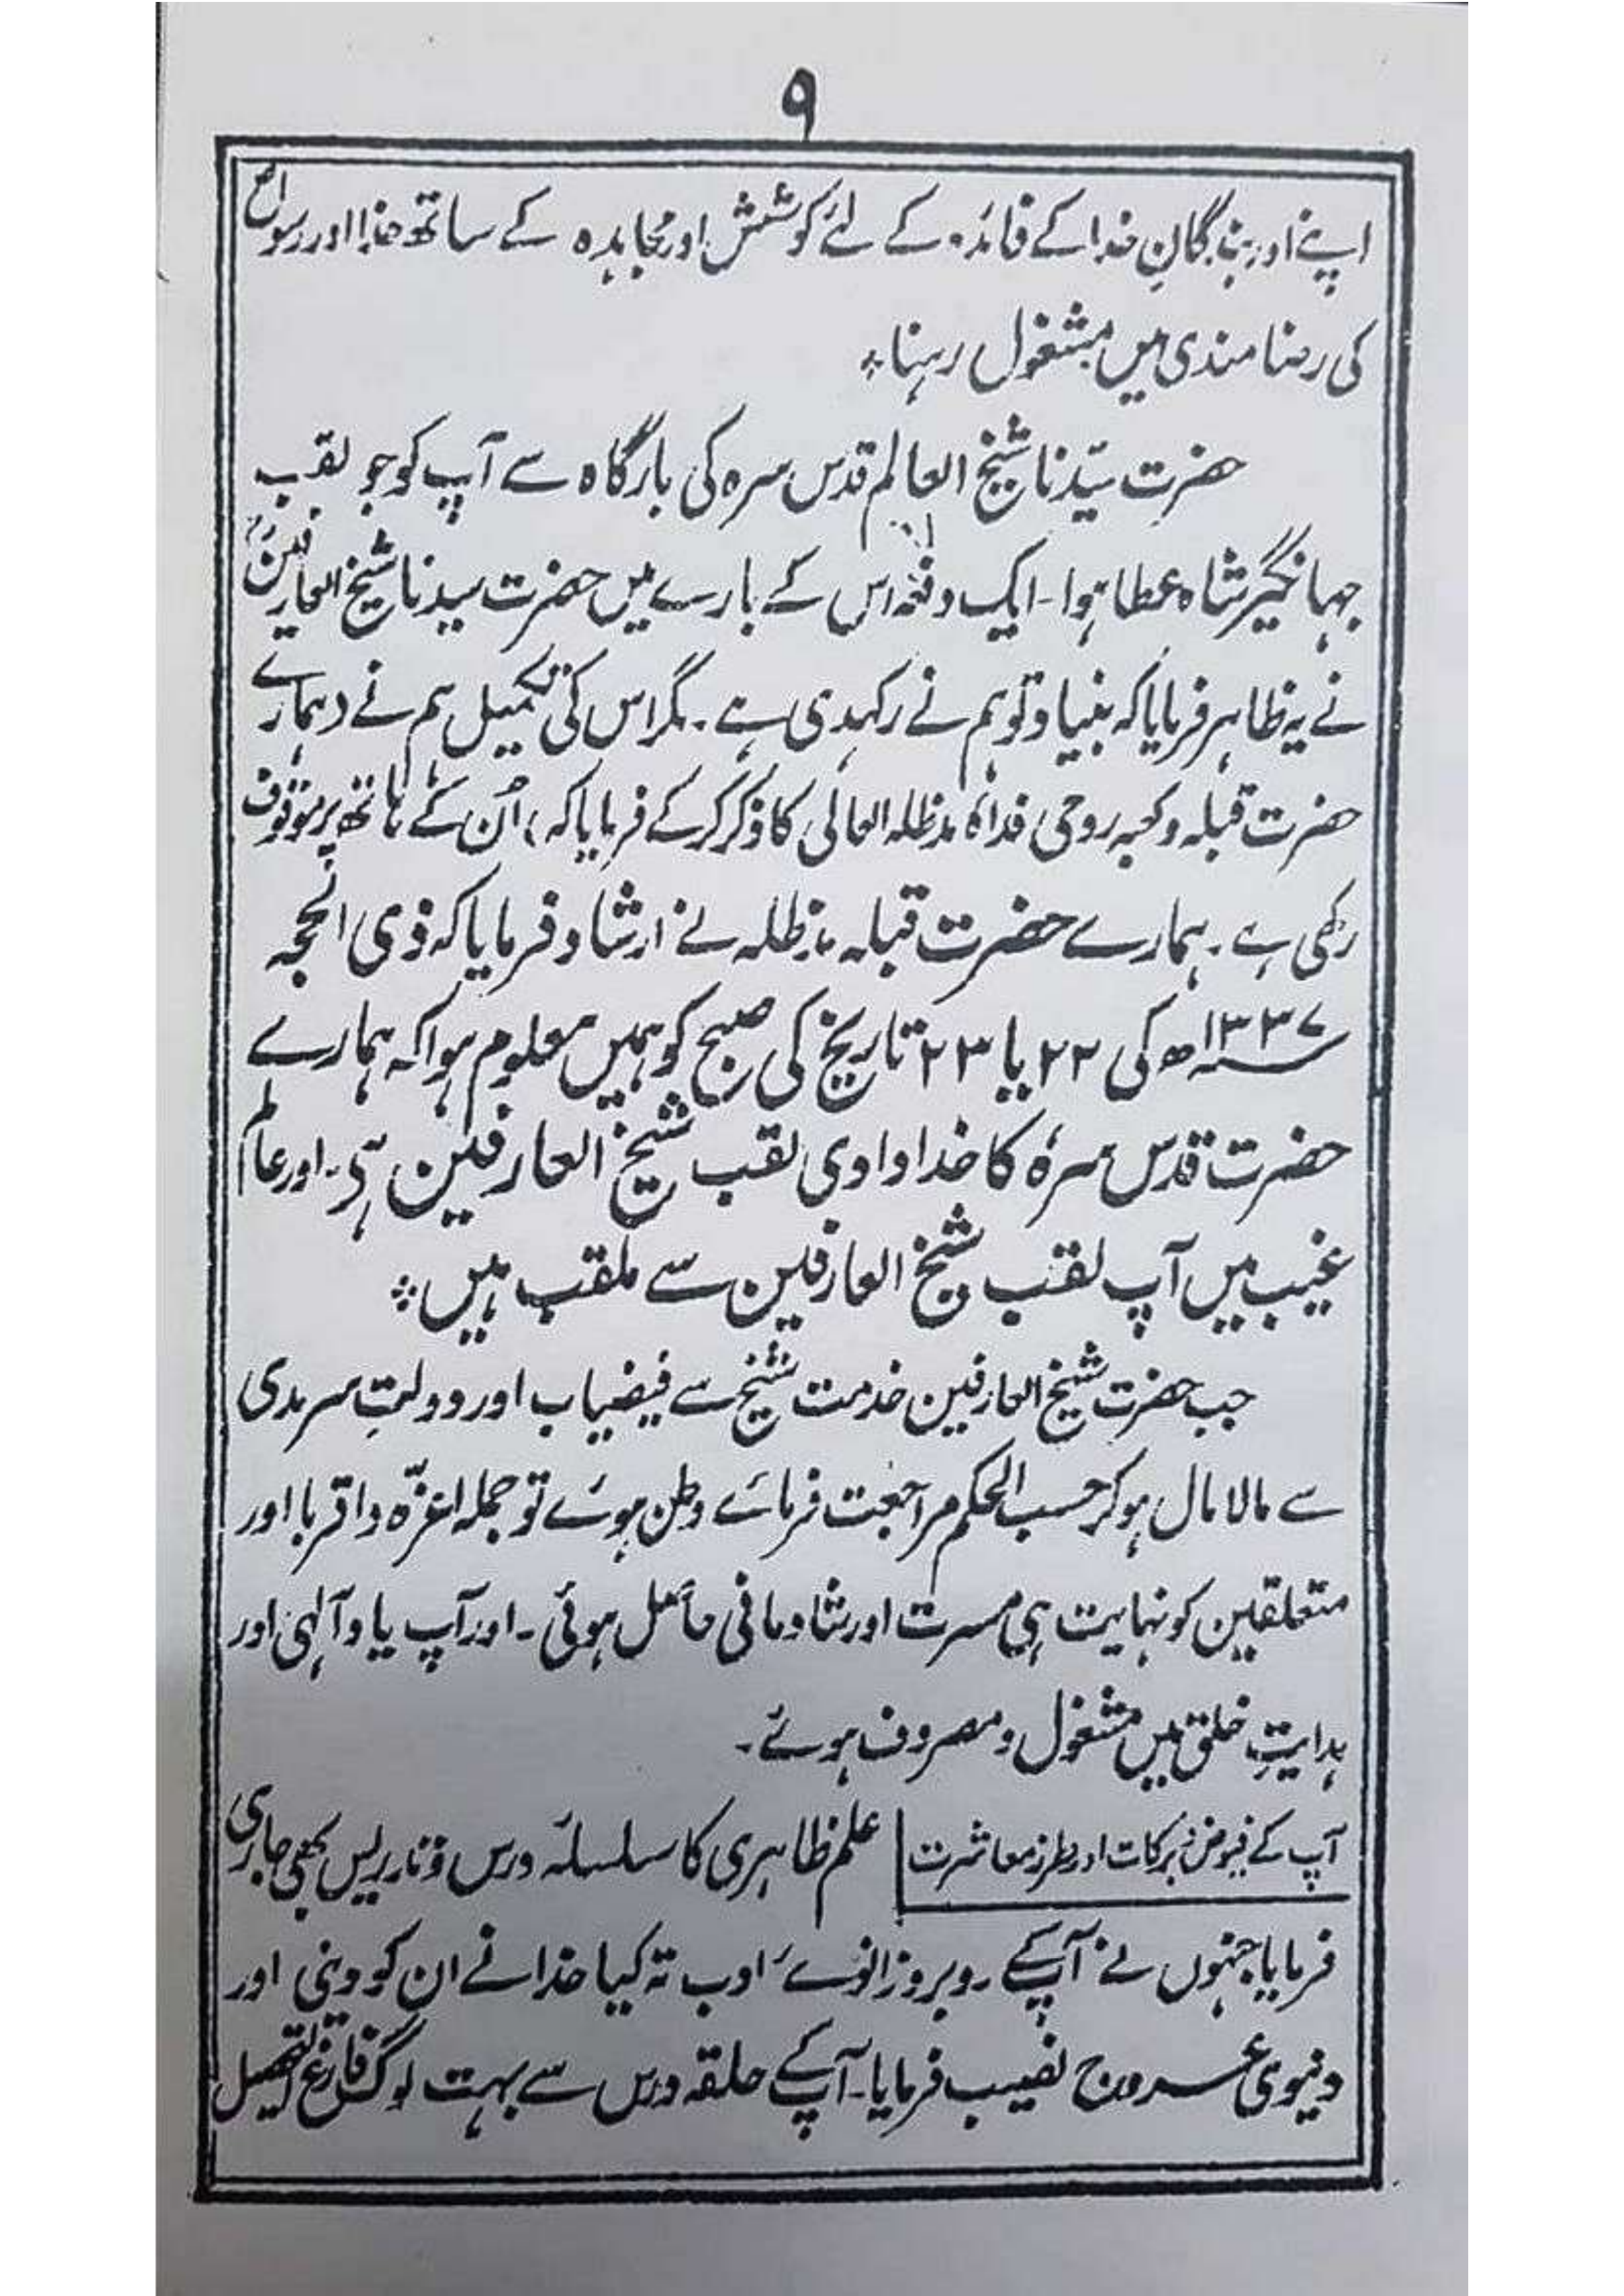 ۹
اپنے اور بندگانِ خدا کے فائدہ کے لئے کوشش اور مجاہدہ کے ساتھ خدا اور رسولؐ
کی رضامندی میں مشغول رہنا؞
حضرت سیّدنا شیخ العالم قدس سرہ کی بارگاہ سے آپ کو جو لقب
جہانگیر شاہ عطا ہوا۔ ایک دفعہ اس کے بارے میں حضرت سیدنا شیخ العارفینؓ
نے یہ ظاہر فرمایا کہ بنیاد تو ہم نے رکھدی ہے۔ مگر اس کی تکمیل ہم نے (ہمارے
حضرت قبلہ و کعبہ روحی فداہٗ مدظلہ العالی کا ذکر کرکے فرمایا کہ) اُن کے ہاتھ پر موقوف
رکھی ہے۔ ہمارے حضرت قبلہ مدظلہ نے ارشاد فرمایا کہ ذی الحجہ
۱۳۳۷ھ کی ۲۲ یا ۲۳ تاریخ کی صبح کو ہمیں معلوم ہوا کہ ہمارے
حضرت قدس سرہٗ کا خدادادی لقب شیخ العارفین ہی۔ اور عالم
غیب میں آپ لقب شیخ العارفین سے ملقب ہیں؞
جب حضرت شیخ العارفین خدمت شیخ سے فیضیاب اور دولتِ سرمدی
سے مالامال ہوکر حسب الحکم مراجعت فرمائے وطن ہوئے تو جملہ اعزّہ واقربا اور
متعلقین کو نہایت ہی مسرت اور شادمانی حاصل ہوئی۔ اور آپ یاد آلہی اور
ہدایتِ خلق میں مشغول و مصروف ہوئے۔
آپ کے فیوض برکات اور طرز معاشرت | علم ظاہری کا سلسلۂ درس و تدریس بھی جاری
فرمایا جنہوں نے آپکے روبرو زانوئے ادب تہ کیا خدا نے ان کو دینی اور
دنیوی عروج نصیب فرمایا۔ آپکے حلقہ درس سے بہت لوگ فارغ التحصیل